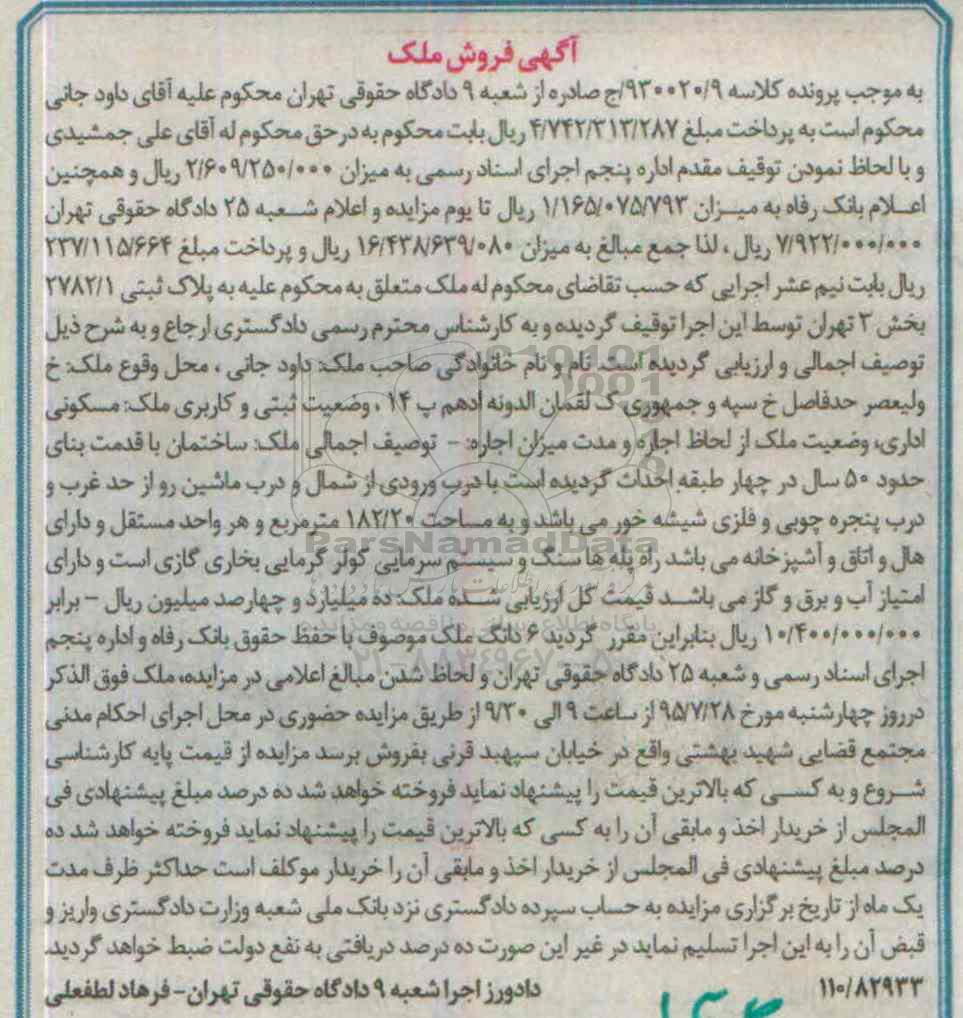 آگهی فروش ملک
به موجب پرونده کلاسه ۹۳۰۰۲۰/۹/ج صادره از شعبه ۹ دادگاه حقوقی تهران محکوم علیه آقای داود جانی
محکوم است به پرداخت مبلغ ۴/۷۴۲/۳۱۳/۲۸۷ ریال بابت محکوم به در حق محکوم له آقای علی جمشیدی
و با لحاظ نمودن توقیف مقدم اداره پنجم اجرای اسناد رسمی به میزان ۲/۶۰۹/۲۵۰/۰۰۰ ریال و همچنین
اعلام بانک رفاه به میزان ۱/۱۶۵/۰۷۵/۷۹۳ ریال تا یوم مزایده و اعلام شعبه ۲۵ دادگاه حقوقی تهران
۷/۹۲۲/۰۰۰/۰۰۰ ریال ، لذا جمع مبالغ به میزان ۱۶/۴۳۸/۶۳۹/۰۸۰ ریال و پرداخت مبلغ ۲۳۷/۱۱۵/۶۶۴
ریال بابت نیم عشر اجرایی که حسب تقاضای محکوم له ملک متعلق به محکوم علیه به پلاک ثبتی ۲۷۸۲/۱
بخش ۳ تهران توسط این اجرا توقیف گردیده و به کارشناس محترم رسمی دادگستری ارجاع و به شرح ذیل
توصیف اجمالی و ارزیابی گردیده است. نام و نام خانوادگی صاحب ملک: داود جانی ، محل وقوع ملک: خ
ولیعصر حدفاصل خ سپه و جمهوری ک لقمان الدونه ادهم پ ۱۴ ، وضعیت ثبتی و کاربری ملک: مسکونی
اداری، وضعیت ملک از لحاظ اجاره و مدت میزان اجاره: - توصیف اجمالی ملک: ساختمان با قدمت بنای
حدود ۵۰ سال در چهار طبقه احداث گردیده است با درب ورودی از شمال و درب ماشین رو از حد غرب و
درب پنجره چوبی و فلزی شیشه خور می باشد و به مساحت ۱۸۲/۲۰ مترمربع و هر واحد مستقل و دارای
هال و اتاق و آشپزخانه می باشد راه پله ها سنگ و سیستم سرمایی کولر گرمایی بخاری گازی است و دارای
امتیاز آب و برق و گاز می باشد قیمت کل ارزیابی شده ملک: ده میلیارد و چهارصد میلیون ریال - برابر
۱۰/۴۰۰/۰۰۰/۰۰۰ ریال بنابراین مقرر گردید ۶ دانگ ملک موصوف با حفظ حقوق بانک رفاه و اداره پنجم
اجرای اسناد رسمی و شعبه ۲۵ دادگاه حقوقی تهران و لحاظ شدن مبالغ اعلامی در مزایده، ملک فوق الذکر
در روز چهارشنبه مورخ ۹۵/۷/۲۸ از ساعت ۹ الی ۹/۳۰ از طریق مزایده حضوری در محل اجرای احکام مدنی
مجتمع قضایی شهید بهشتی واقع در خیابان سپهبد قرنی بفروش برسد مزایده از قیمت پایه کارشناسی
شروع و به کسی که بالاترین قیمت را پیشنهاد نماید فروخته خواهد شد ده درصد مبلغ پیشنهادی فی
المجلس از خریدار اخذ و مابقی آن را به کسی که بالاترین قیمت را پیشنهاد نماید فروخته خواهد شد ده
درصد مبلغ پیشنهادی فی المجلس از خریدار اخذ و مابقی آن را خریدار موکلف است حداکثر ظرف مدت
یک ماه از تاریخ برگزاری مزایده به حساب سپرده دادگستری نزد بانک ملی شعبه وزارت دادگستری واریز و
قبض آن را به این اجرا تسلیم نماید در غیر این صورت ده درصد دریافتی به نفع دولت ضبط خواهد گردید.
۱۱۰/۸۲۹۳۳ دادورز اجرا شعبه ۹ دادگاه حقوقی تهران- فرهاد لطفعلی
ParsNamadData
پایگاه اطلاع رسانی مناقصه و مزایده